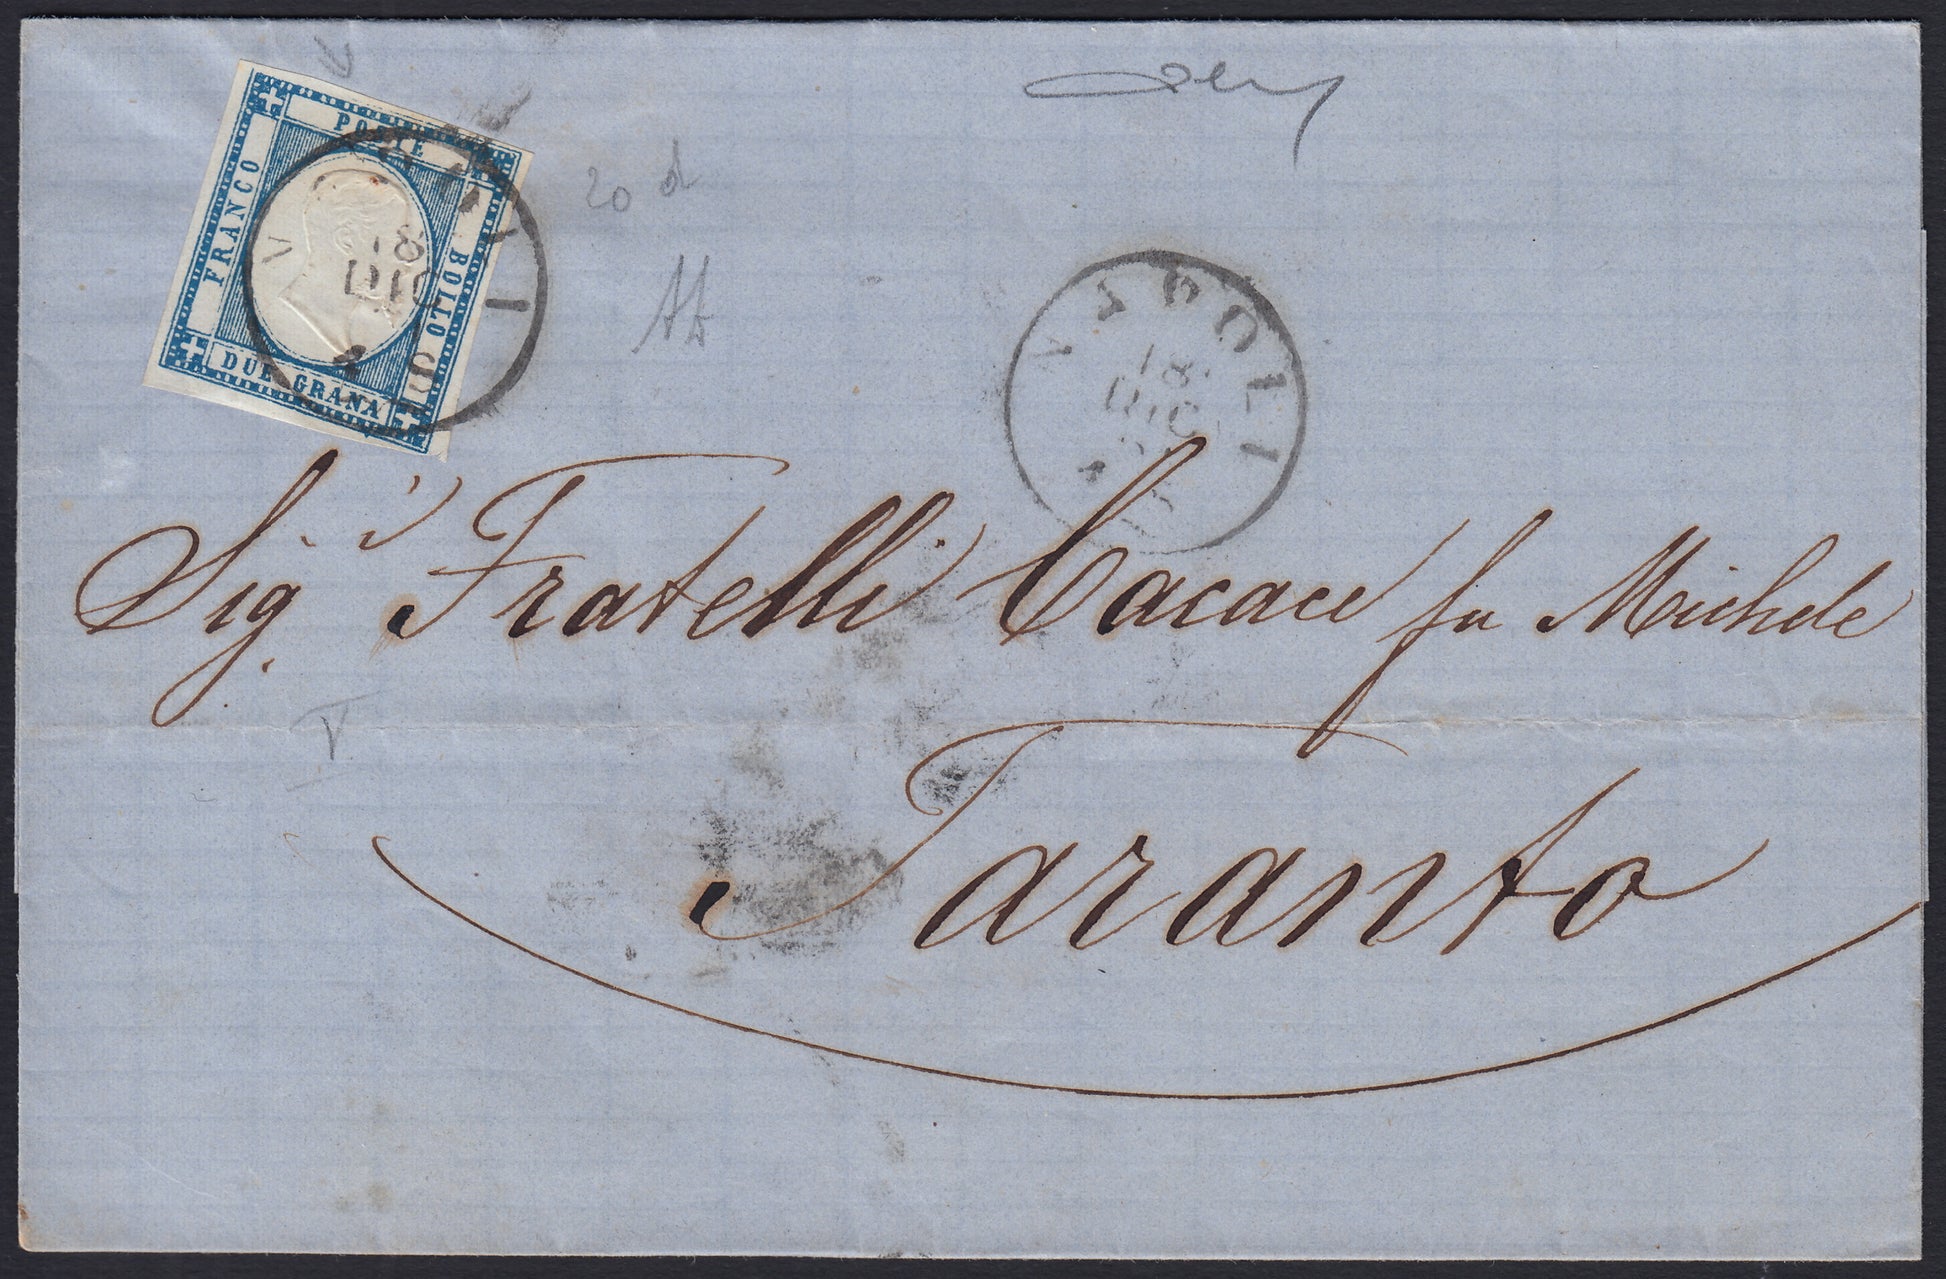 FRANCO
POSTE
BOLLO
DUE GRANA
18 DIC
20 d
NAPOLI
18 DIC
Sig.i Fratelli Cacace fu Michele
Taranto